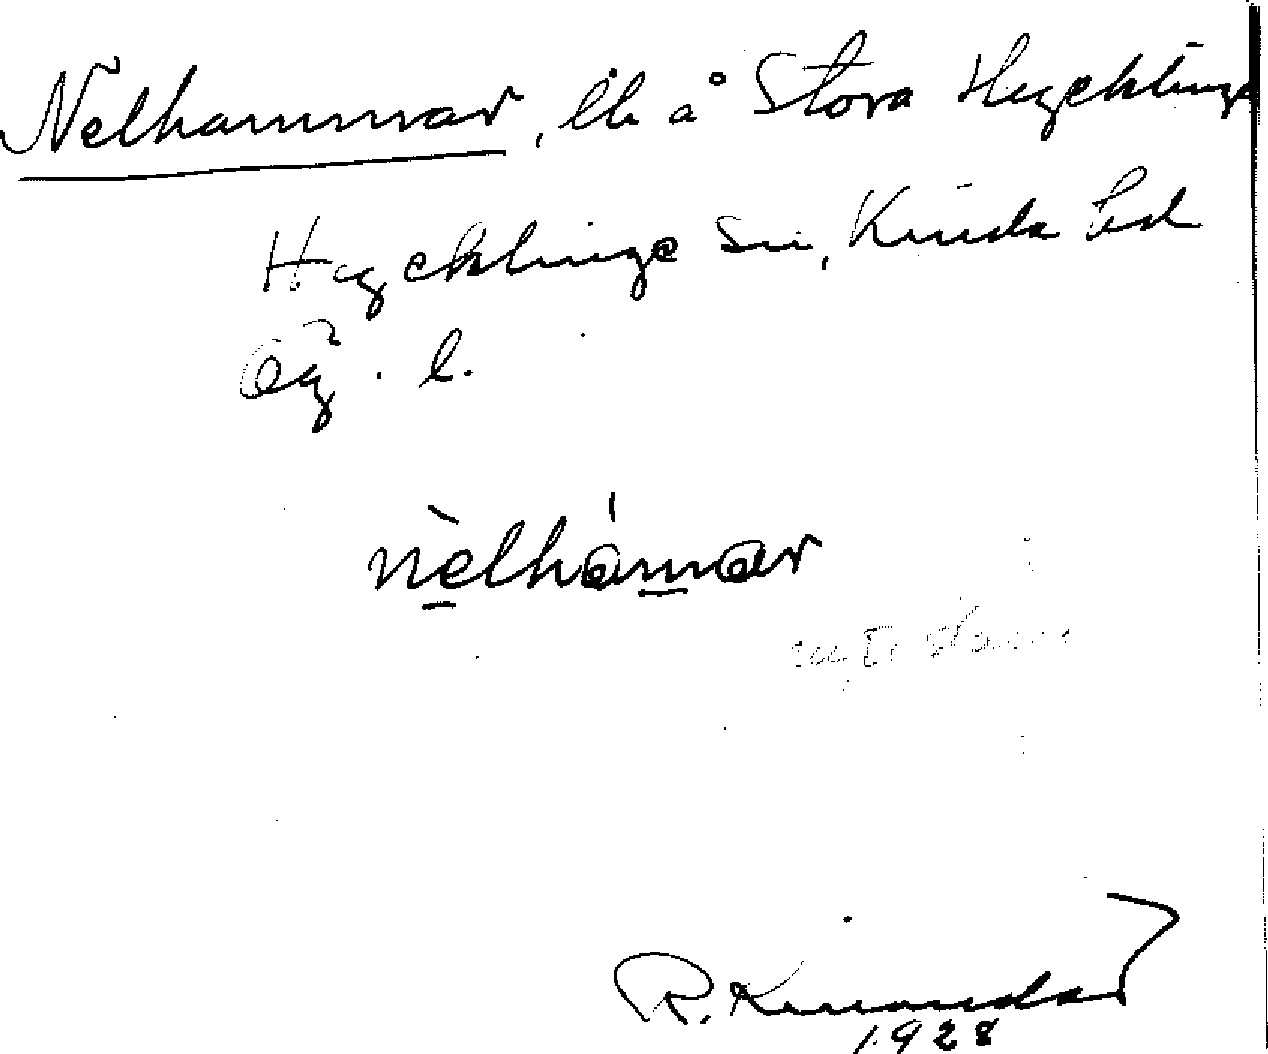 Nelhammar, lh å Stora Hycklinge
Hycklinge sn, Kinda hd
Ög. l.
nèlhámar
R. Kinander
1928